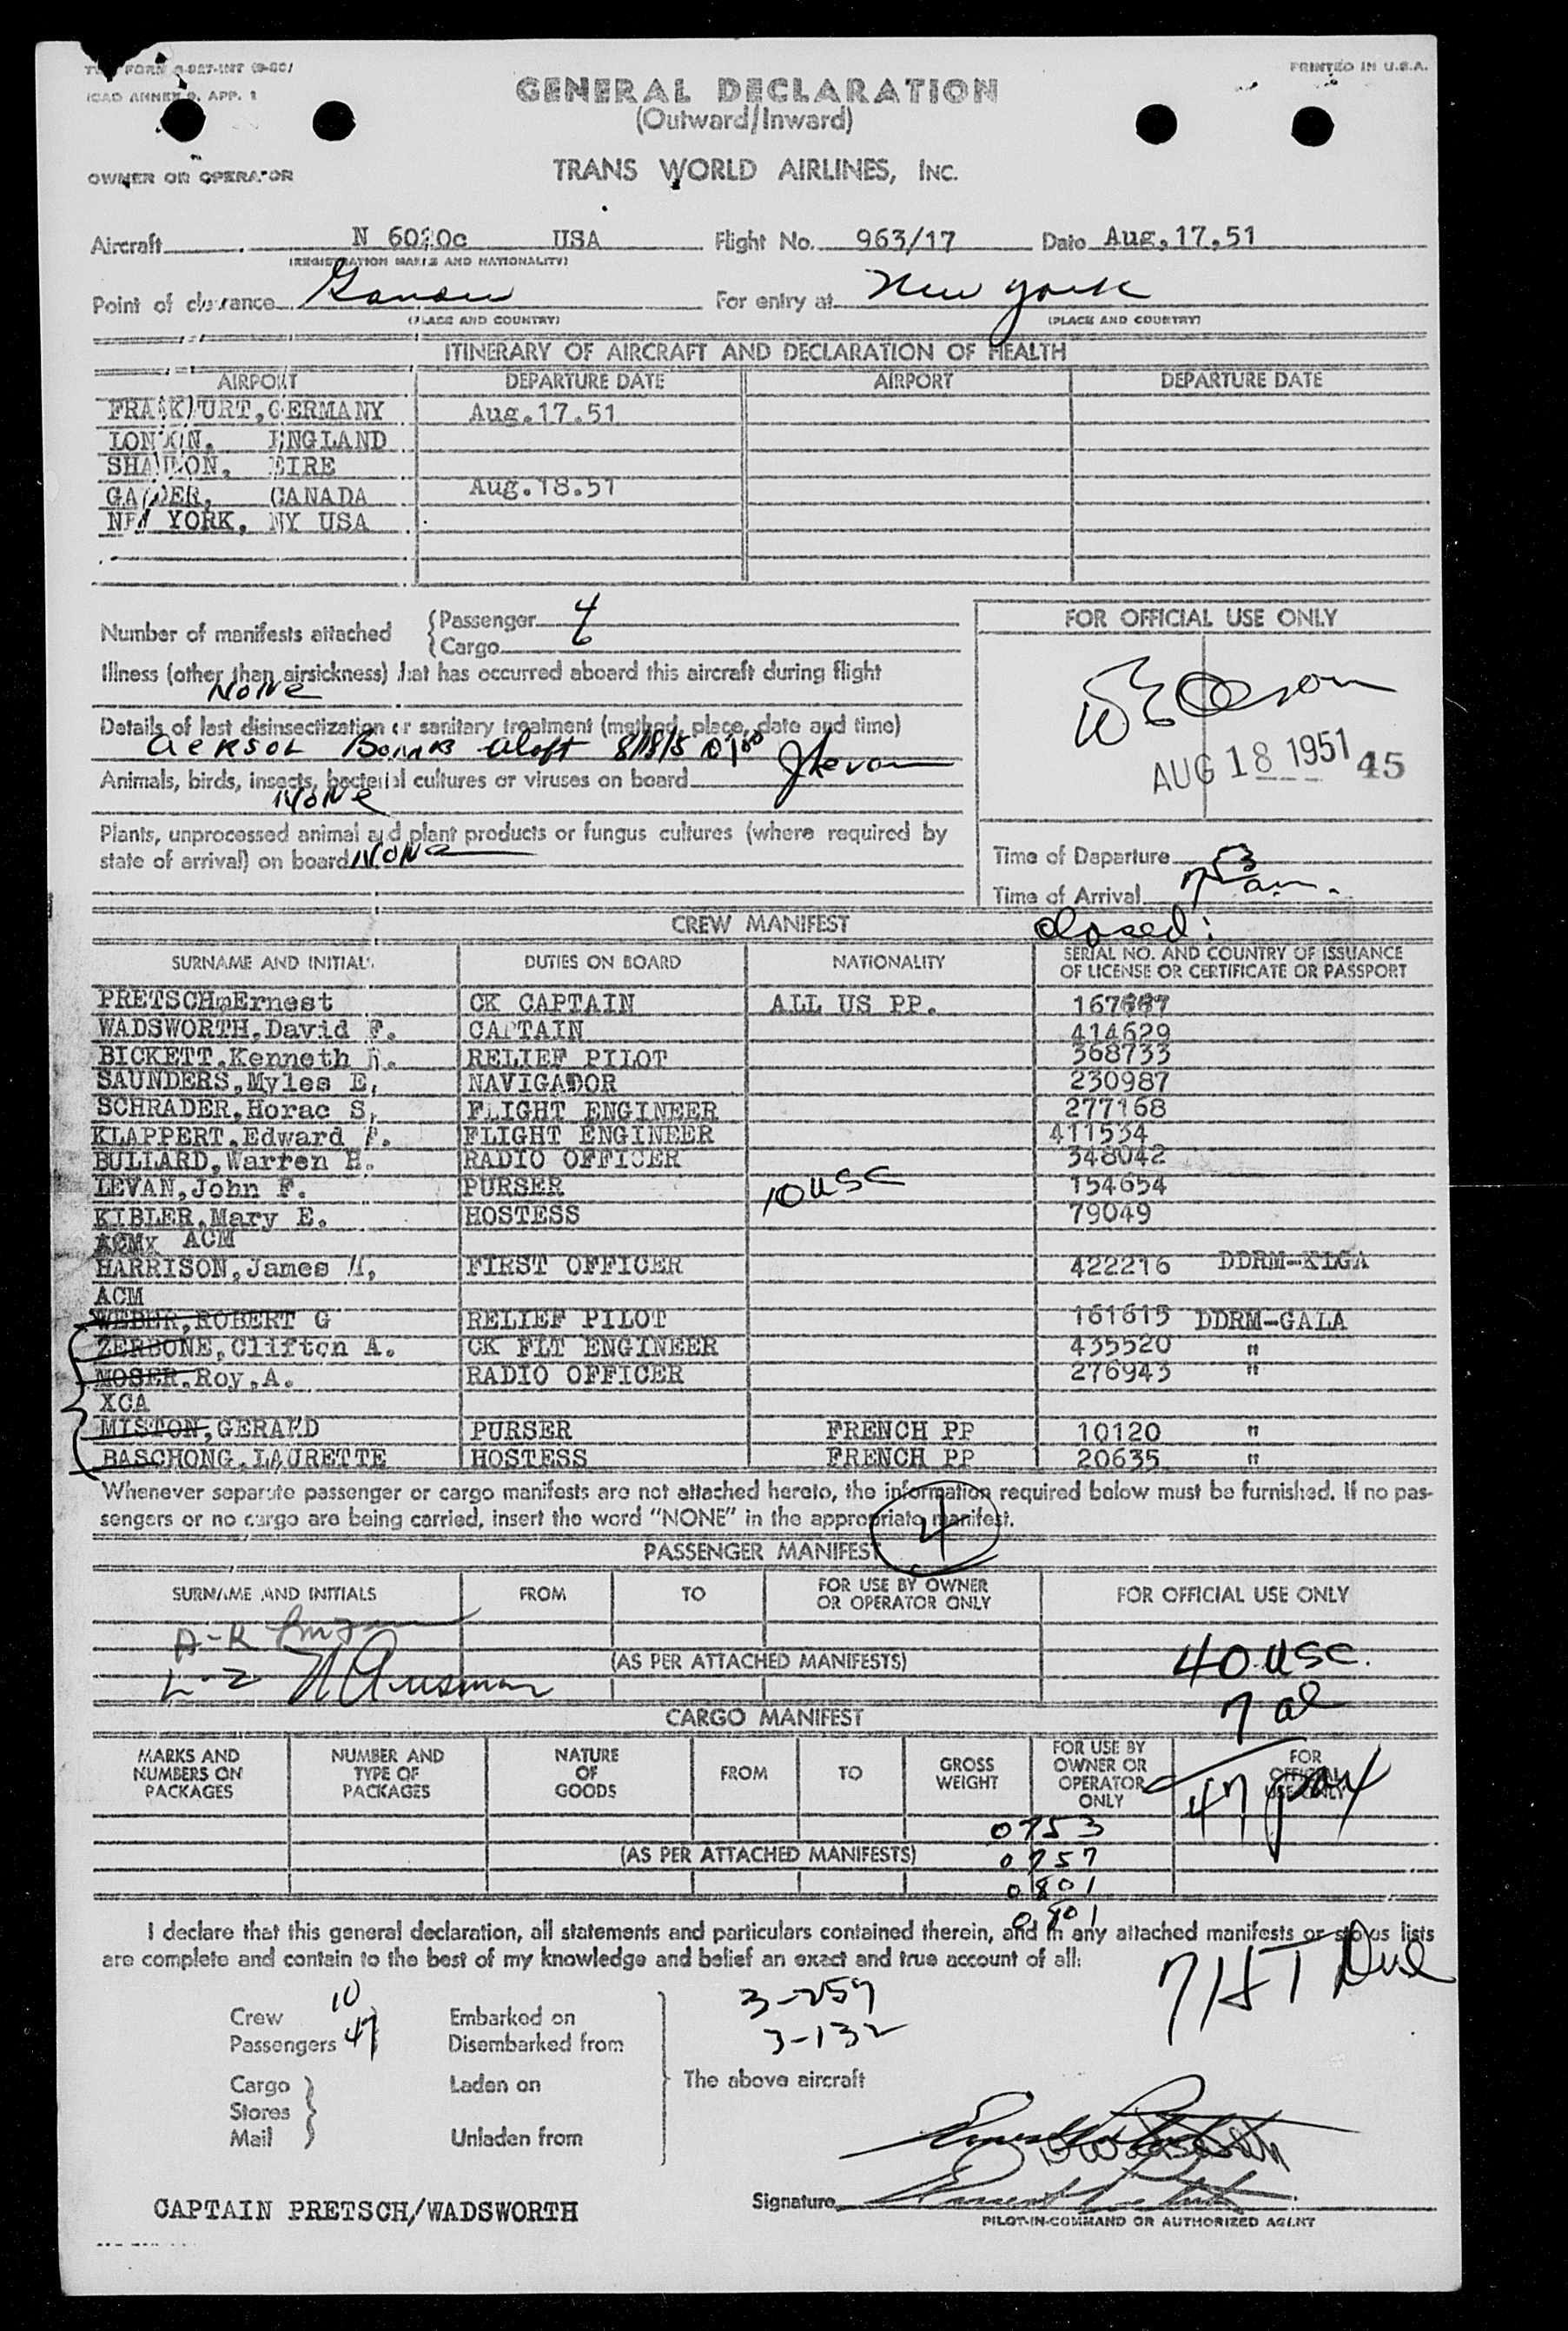 FORM
ICAO ANNEX 9, APP. 1
PRINTED IN U.S.A.
GENERAL DECLARATION
(Outward/Inward)
OWNER OR OPERATOR
TRANS WORLD AIRLINES, INC.
Aircraft N 6020c USA Flight No. 963/17 Date Aug.17.51
(REGISTRATION MARKS AND NATIONALITY)
Point of clearance Gander For entry at New York
(PLACE AND COUNTRY) (PLACE AND COUNTRY)
ITINERARY OF AIRCRAFT AND DECLARATION OF HEALTH
AIRPORT DEPARTURE DATE AIRPORT DEPARTURE DATE
FRANKFURT,GERMANY Aug.17.51
LONDON, ENGLAND
SHANNON, EIRE
GANDER, CANADA Aug.18.51
NEW YORK, NY USA
Number of manifests attached
Passenger 4
Cargo 6
Illness (other than airsickness) that has occurred aboard this aircraft during flight
None
Details of last disinsectization or sanitary treatment (method, place, date and time)
Aerksol Bombs aloft
Animals, birds, insects, bacterial cultures or viruses on board
None
Plants, unprocessed animal and plant products or fungus cultures (where required by
state of arrival) on board None
FOR OFFICIAL USE ONLY
AUG 18 1951 45
Time of Departure
Time of Arrival 7 53 am.
closed:
CREW MANIFEST
SURNAME AND INITIALS DUTIES ON BOARD NATIONALITY SERIAL NO. AND COUNTRY OF ISSUANCE
OF LICENSE OR CERTIFICATE OR PASSPORT
PRETSCHmErnest CK CAPTAIN ALL US PP.
WADSWORTH,David F. CAPTAIN 414629
BICKETT,Kenneth R. RELIEF PILOT 368733
SAUNDERS,Myles E, NAVIGADOR 230987
SCHRADER,Horac S, FLIGHT ENGINEER 277168
KLAPPERT,Edward F. FLIGHT ENGINEER 411534
BULLARD,Warren H. RADIO OFFICER 348042
LEVAN,John F. PURSER 10 USC 154654
KIBLER,Mary E. HOSTESS 79049
ACMx ACM
HARRISON,James M, FIRST OFFICER 422216 DDRM-KLGA
ACM
WEBER,ROBERT G RELIEF PILOT 161615 DDRM-GALA
ZERBONE,Clifton A. CK FLT ENGINEER 435520 "
MOSER,Roy,A. RADIO OFFICER 276943 "
XCA
MISTON,GERARD PURSER FRENCH PP 10120 "
BASCHONG,LAURETTE HOSTESS FRENCH PP 20635 "
Whenever separate passenger or cargo manifests are not attached hereto, the information required below must be furnished. If no pas-
sengers or no cargo are being carried, insert the word "NONE" in the appropriate manifest.
4
PASSENGER MANIFEST
SURNAME AND INITIALS FROM TO FOR USE BY OWNER
OR OPERATOR ONLY FOR OFFICIAL USE ONLY
A-K
(AS PER ATTACHED MANIFESTS) 40 USC.
L-Z
7 al
CARGO MANIFEST
MARKS AND
NUMBERS ON
PACKAGES
NUMBER AND
TYPE OF
PACKAGES
NATURE
OF
GOODS
FROM
TO
GROSS
WEIGHT
FOR USE BY
OWNER OR
OPERATOR
ONLY
FOR
OFFICIAL
USE ONLY
47 pax
0753
(AS PER ATTACHED MANIFESTS) 0757
0801
0801
I declare that this general declaration, all statements and particulars contained therein, and in any attached manifests or stores lists
are complete and contain to the best of my knowledge and belief an exact and true account of all:
Crew 10 Embarked on 3-259
Passengers 47 Disembarked from 3-132
Cargo Laden on The above aircraft
Stores
Mail Unladen from
CAPTAIN PRETSCH/WADSWORTH
Signature
PILOT-IN-COMMAND OR AUTHORIZED AGENT